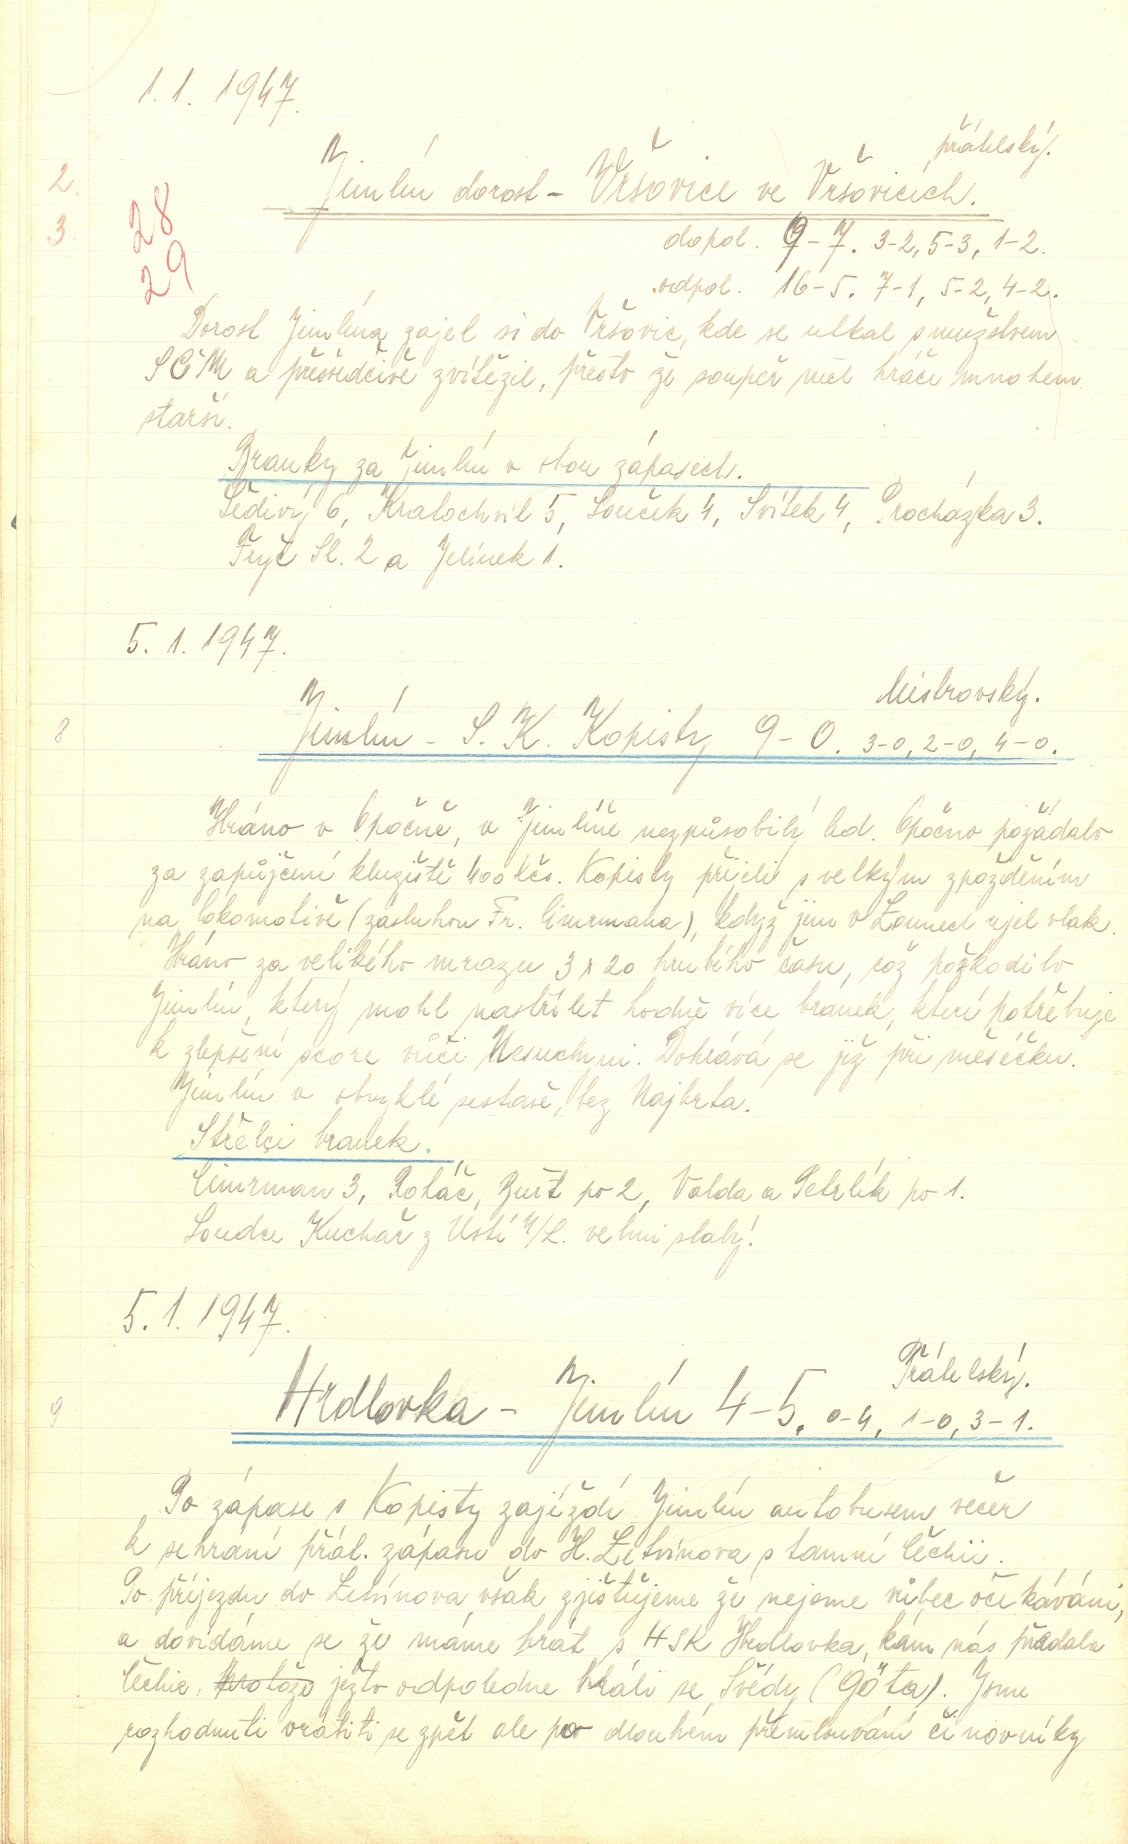 1. 1. 1947.
přátelský.
2.
Jimlín dorost - Vršovice ve Vršovicích.
3.
28
dopol. 9-7. 3-2, 5-3, 1-2.
29
odpol. 16-5. 7-1, 5-2, 4-2.
Dorost Jimlína zajel si do Vršovic, kde se utkal s mužstvem
SČM a přesvědčivě zvítězil, přesto že soupeř měl hráče mnohem
starší.
Branky za Jimlín v obou zápasech.
Šedivý 6, Kratochvíl 5, Souček 4, Svítek 4, Procházka 3.
Fryč Sl. 2 a Jelínek 1.
5. 1. 1947.
Mistrovský.
8
Jimlín - S. K. Kopisty 9-0. 3-0, 2-0, 4-0.
Hráno v Opočně, v Jimlíně nezpůsobilý led. Opočno požádalo
za zapůjčení kluziště 400 kčs. Kopisty přijeli s velkým zpožděním
na lokomotivě (zásluhou Fr. Cimrmana), když jim v Lounech ujel vlak.
Hráno za velikého mrazu 3 x 20 hrubého času, což poškodilo
Jimlín, který mohl nastřílet hodně více branek, které potřebuje
k zlepšení score vůči Nesuchyni. Dohrává se již při měsíčku.
Jimlín v obvyklé sestavě, bez Najbrta.
Střelci branek.
Cimrman 3, Rotáč, Bušt po 2, Valda a Petrlík po 1.
Soudce Kuchař z Ústí n/L. velmi slabý!
5. 1. 1947.
Přátelský.
9
Hrdlovka - Jimlín 4-5. 0-4, 1-0, 3-1.
Po zápase s Kopisty zajíždí Jimlín autobusem večer
k sehrání přát. zápasu do H. Letvínova s tamní Čechií.
Po příjezdu do Letvínova však zjišťujeme že nejsme vůbec očekáváni,
a dovídáme se že máme hrát s HSK Hrdlovka, kam nás předala
Čechie, protože ježto odpoledne hráli se Švédy (Göta). Jsme
rozhodnuti vrátiti se zpět ale po dlouhém přemlouvání činovníky